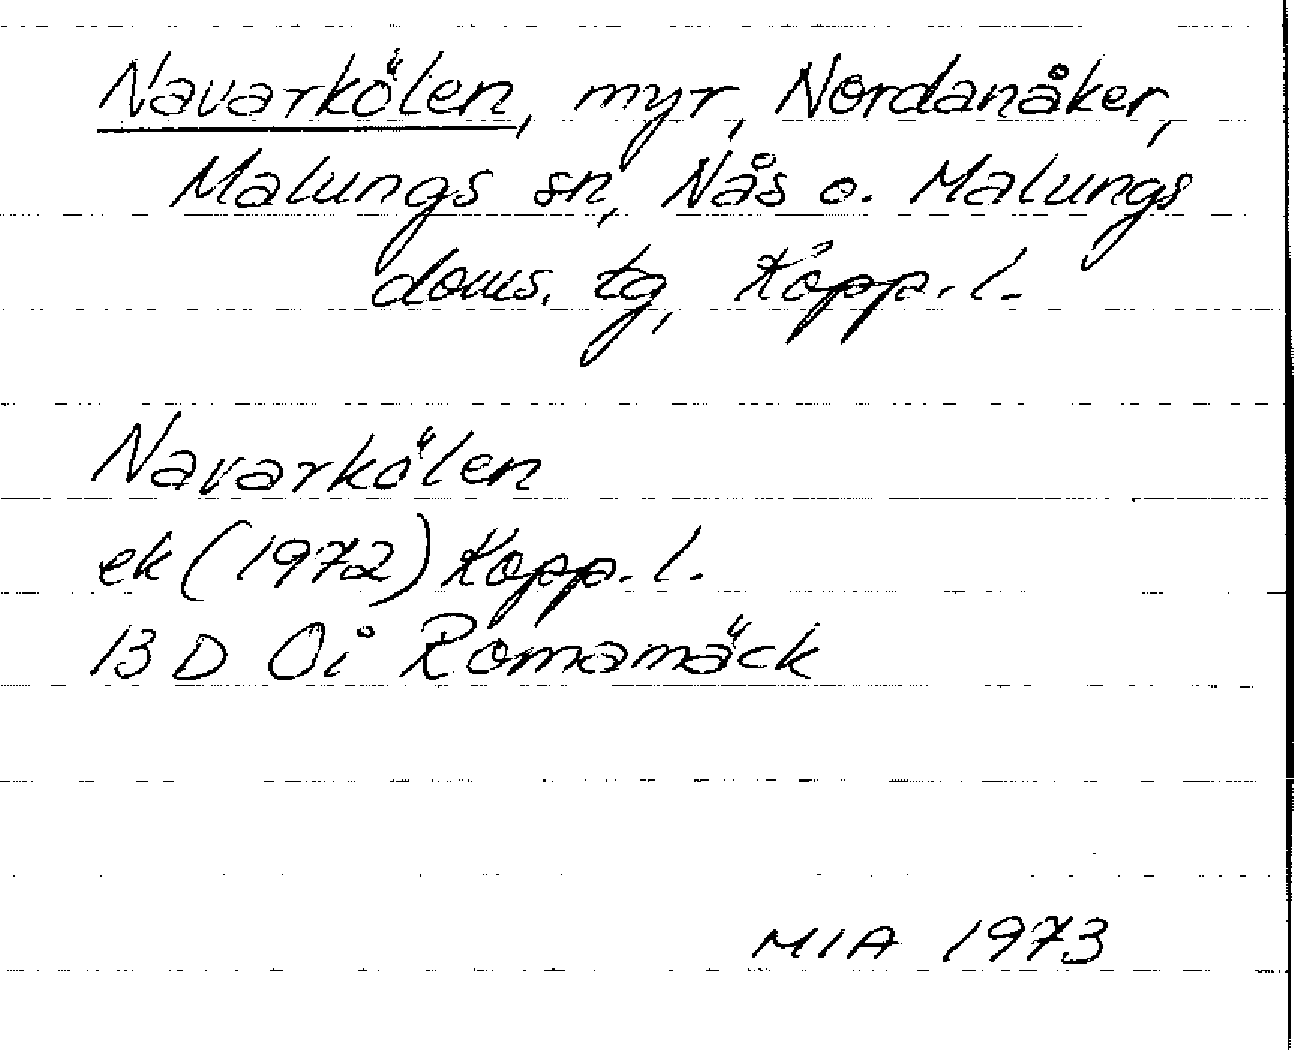 Navarkölen, myr, Nordanåker,
Malungs sn, Nås o. Malungs
doms. tg, Kopp. l.
Navarkölen
ek (1972) Kopp. l.
13 D Oi Romamäck
MIA 1973